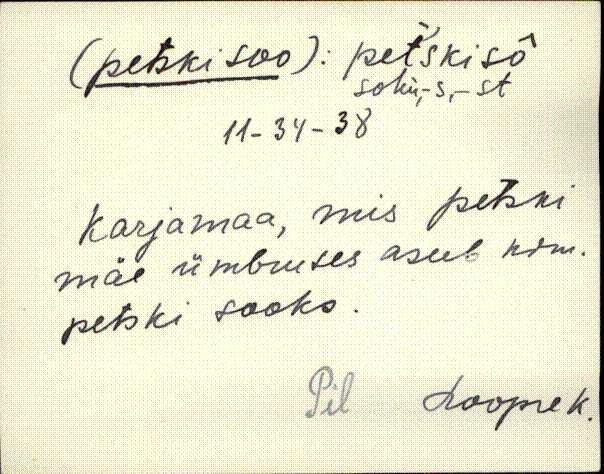 (petski soo): pet́škisô
sohu,-s,-st
11-34-38
Karjamaa, mis petski
mäe ümbruses asub nim.
petski sooks.
Pil Loopre k.